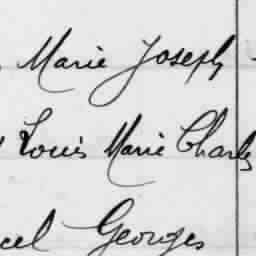 Marie Joseph
Louis Marie Charles
cel Georges